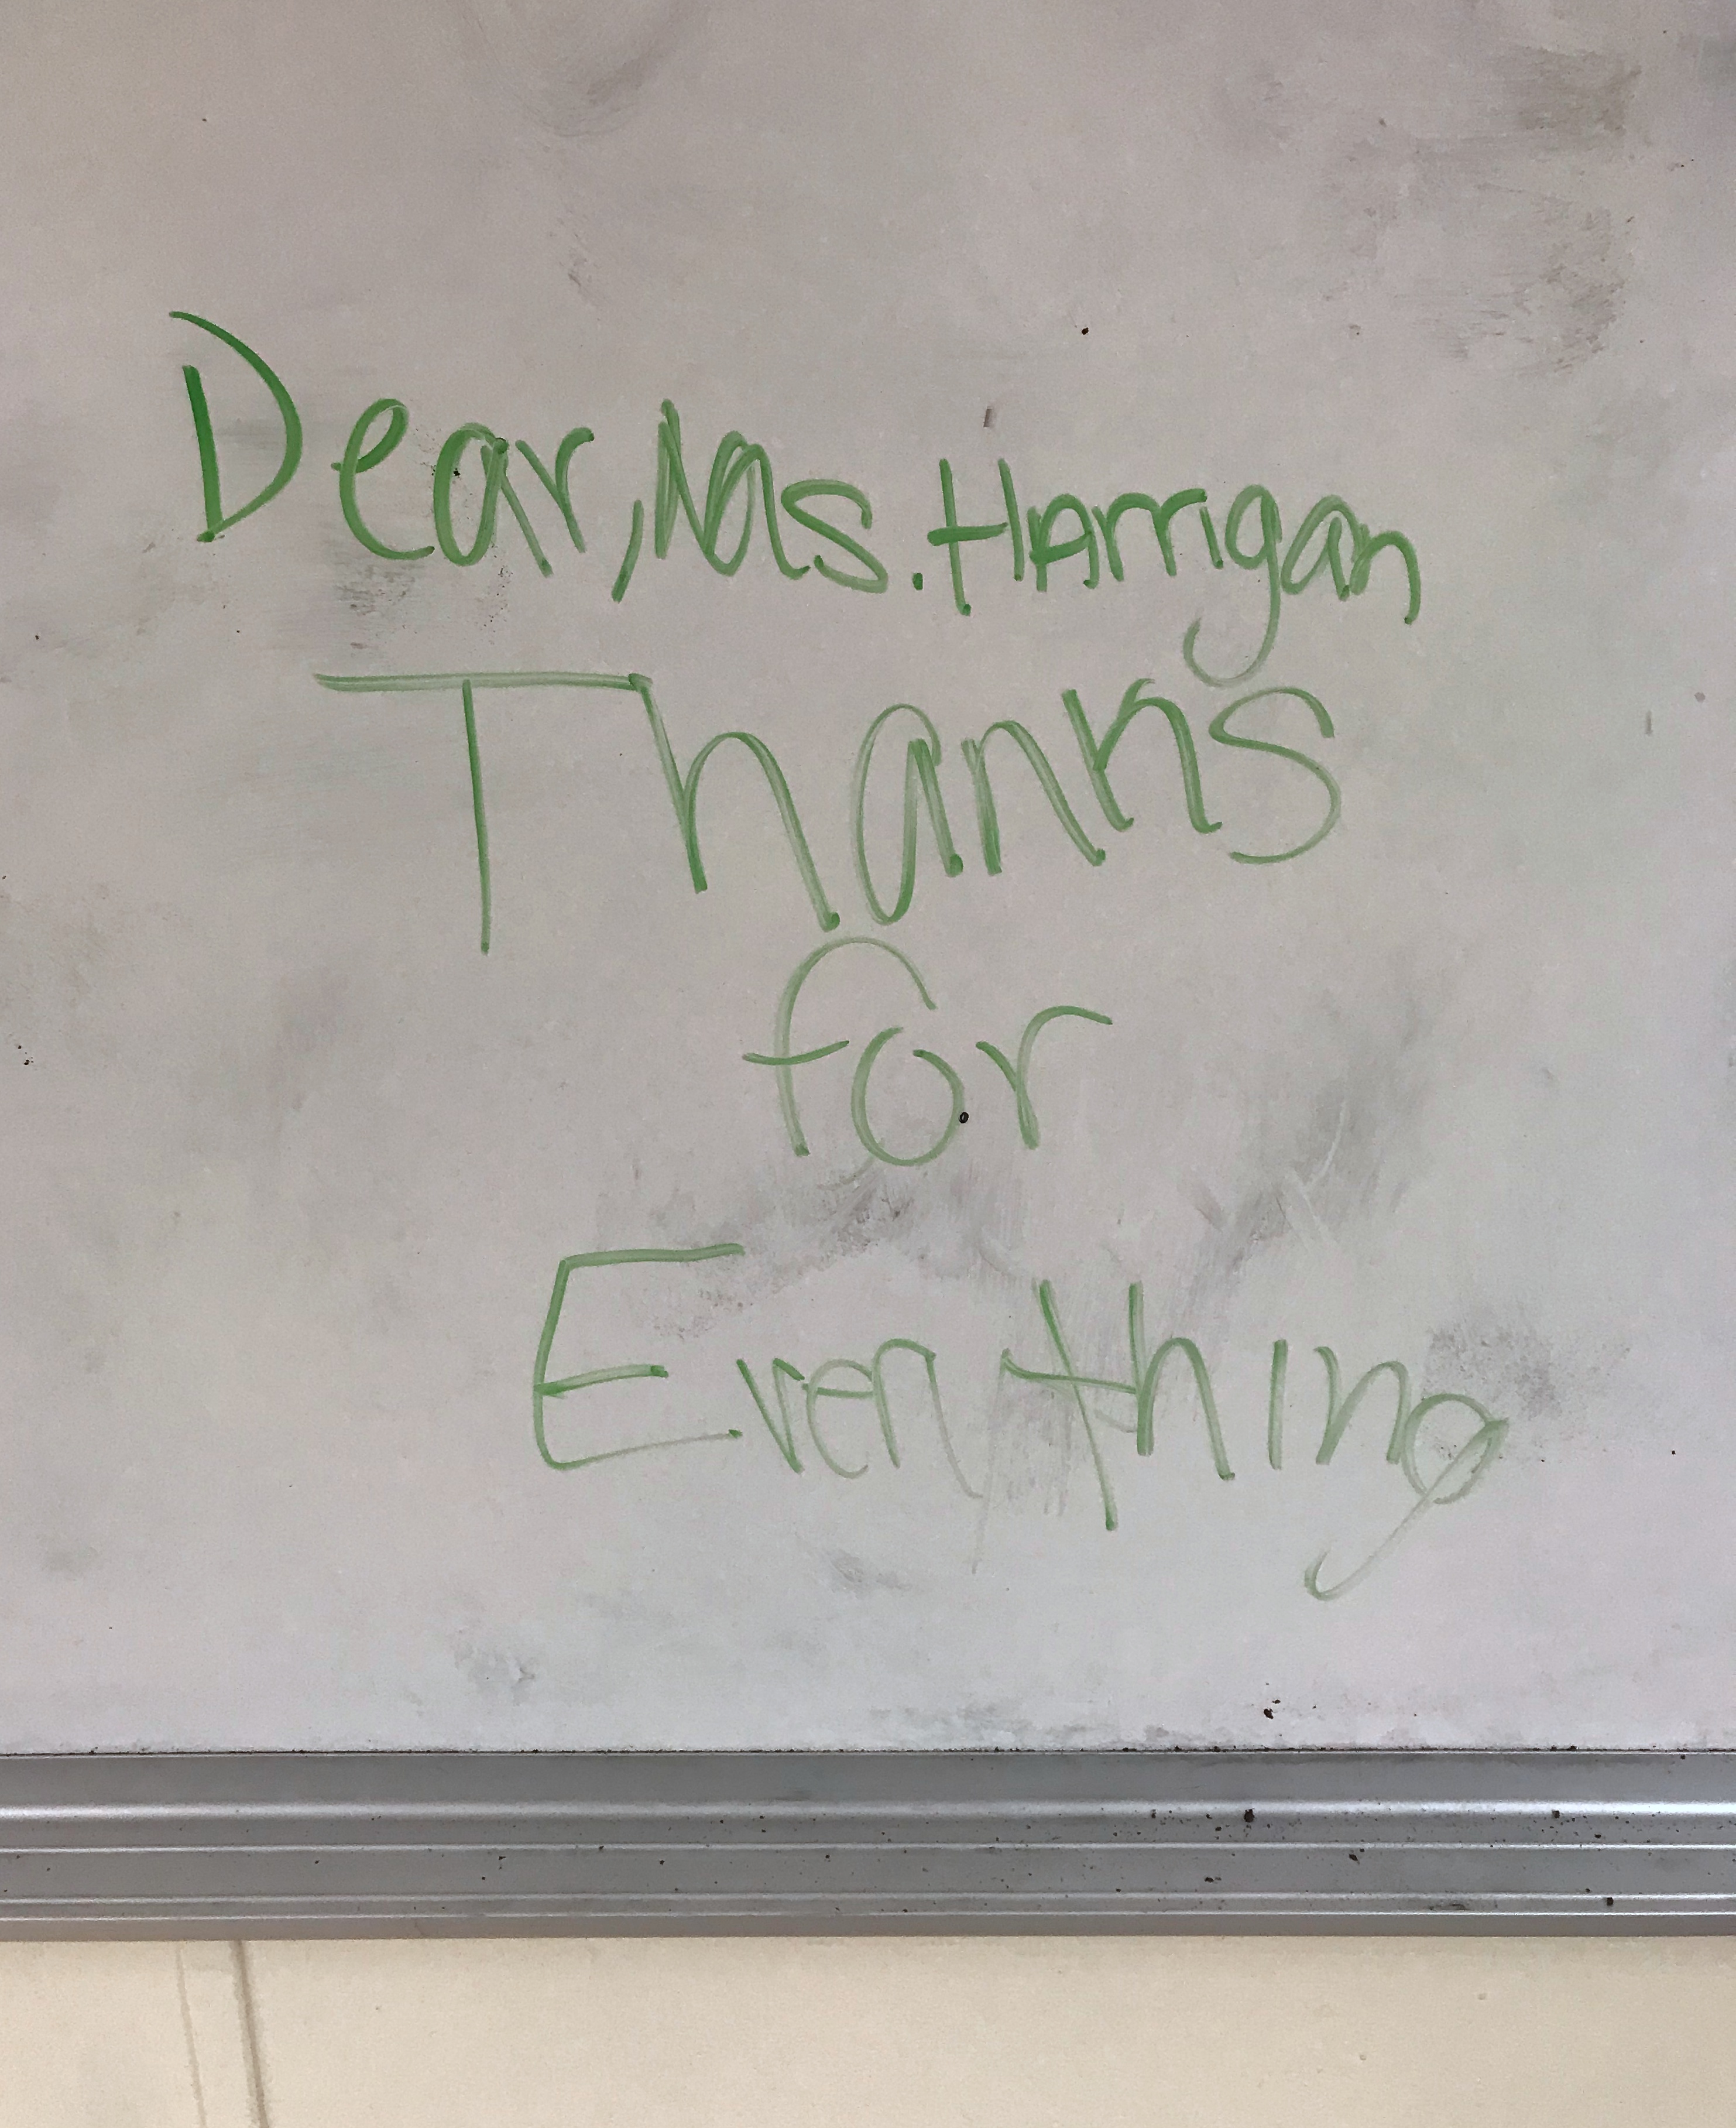 Dear, Ms. Harrigan
Thanks
for
Everything